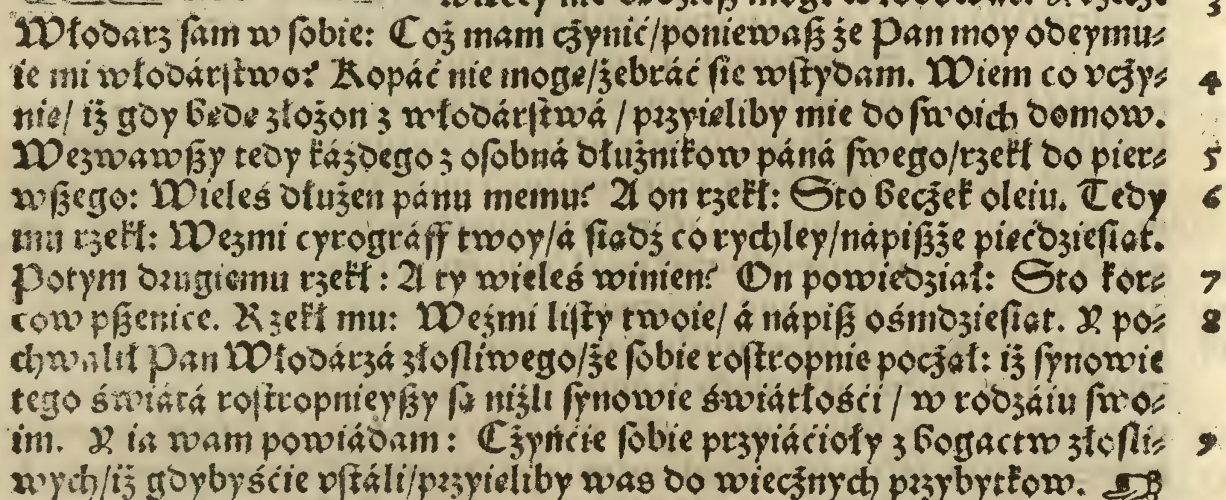 3
Włodarz sam w sobie: Coż mam cżynić/ponieważ że Pan moy odeymu⸗
ie mi włodárstwo? Kopáć nie moge/żebráć sie wstydam. Wiem co vcży⸗ 4
nię/ iż gdy będę złożon z włodárstwá / przyięliby mie do swoich domow.
Wezwawszy tedy káżdego z osobná dłużnikow páná swego/rzekł do pier⸗ 5
wszego: Wieleś dłużen pánu memu? A on rzekł: Sto becżek oleiu. Tedy 6
mu rzekł: Wezmi cyrográff twoy/á siądź co rychley/nápiszże pięćdziesiąt.
Potym drugiemu rzekł: A ty wieleś winien? On powiedział: Sto kor⸗ 7
cow pszenice. Rzekł mu: Weźmi listy twoie/ á nápisz ośmdziesiąt. Y po⸗ 8
chwalił Pan Włodárzá złosliwego/że sobie rostropnie pocżął: iż synowie
tego świátá rostropnieyszy są niżli synowie świátłości / w rodzáiu swo⸗
im. Y ia wam powiádam: Cżyńcie sobie przyiácioły z bogactw złosli⸗ 9
wych/iż gdybyście vstáli/przyięliby was do wiecżnych przybytkow.